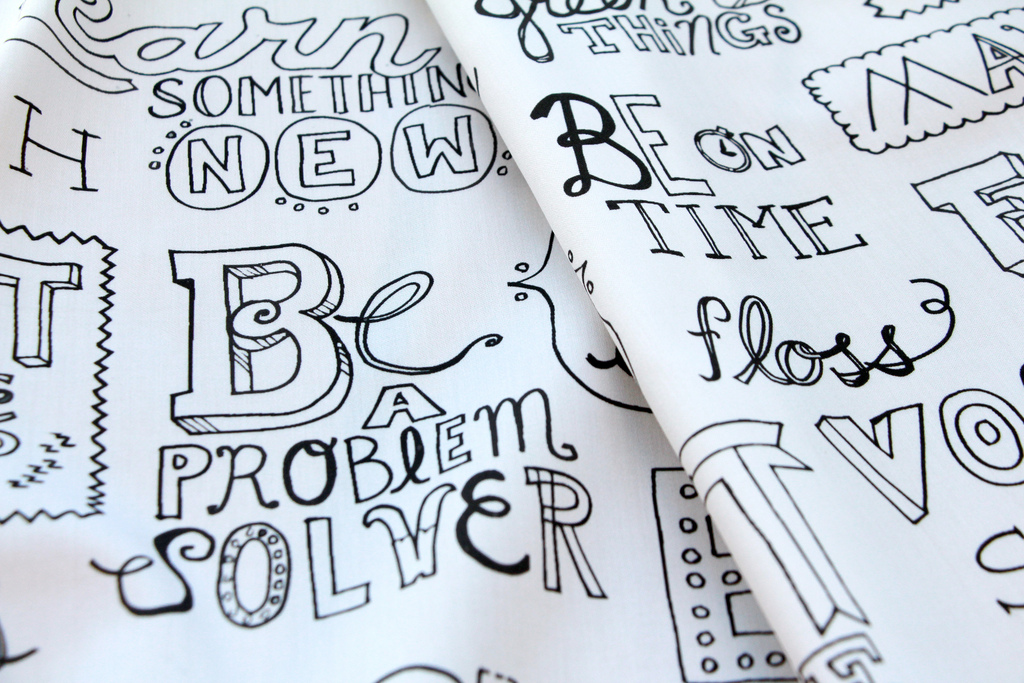 Learn
SOMETHING
NEW
H
T
Be
A
PROBLEM
SOLVER
green
THiNGS
BE ON
TIME
floss
MA
E
VO
T
S